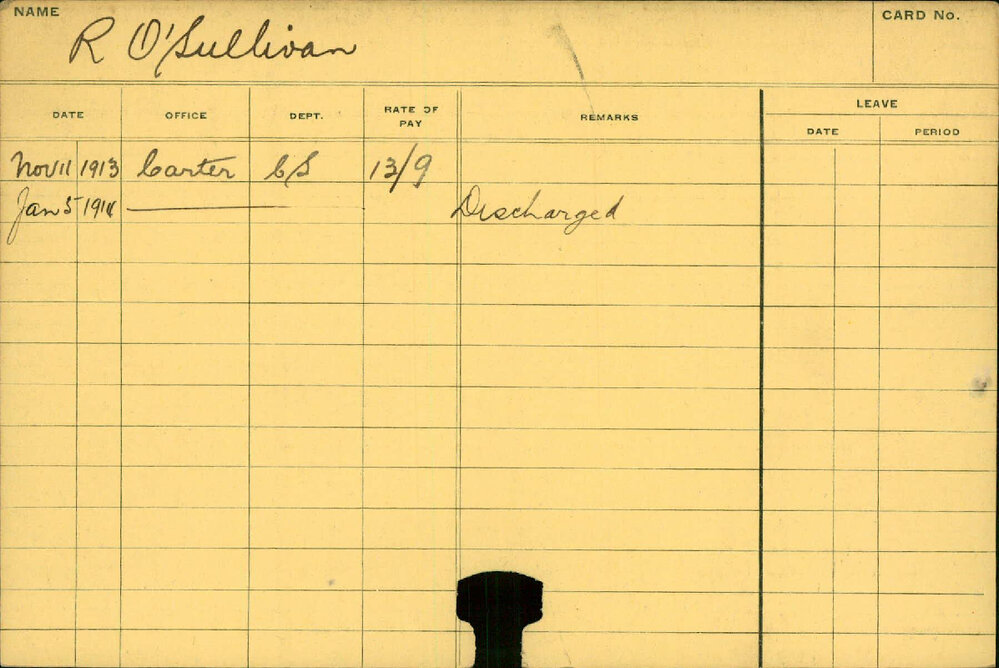 NAME
R O'Sullivan
CARD No.
DATE OFFICE DEPT. RATE OF PAY REMARKS LEAVE
DATE PERIOD
Nov 11 1913 Carter CS 13/9
Jan 5 Discharged